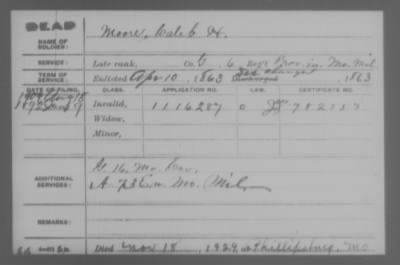 DEAD
NAME OF SOLDIER: Moore, Caleb H.
SERVICE: Late rank, Co. G 6 Reg't Prov. Mo. Mil
TERM OF SERVICE: Enlisted Apr 10, 1863 Discharged , 1863
DATE OF FILING. CLASS. APPLICATION NO. LAW. CERTIFICATE NO.
1892 Invalid, 1116287
Widow,
Minor,
ADDITIONAL SERVICES: 16, Mo. Cav.
A 73 Mo. Mil.
REMARKS:
Died Nov 18, 1929, at Phillipsburg, Mo